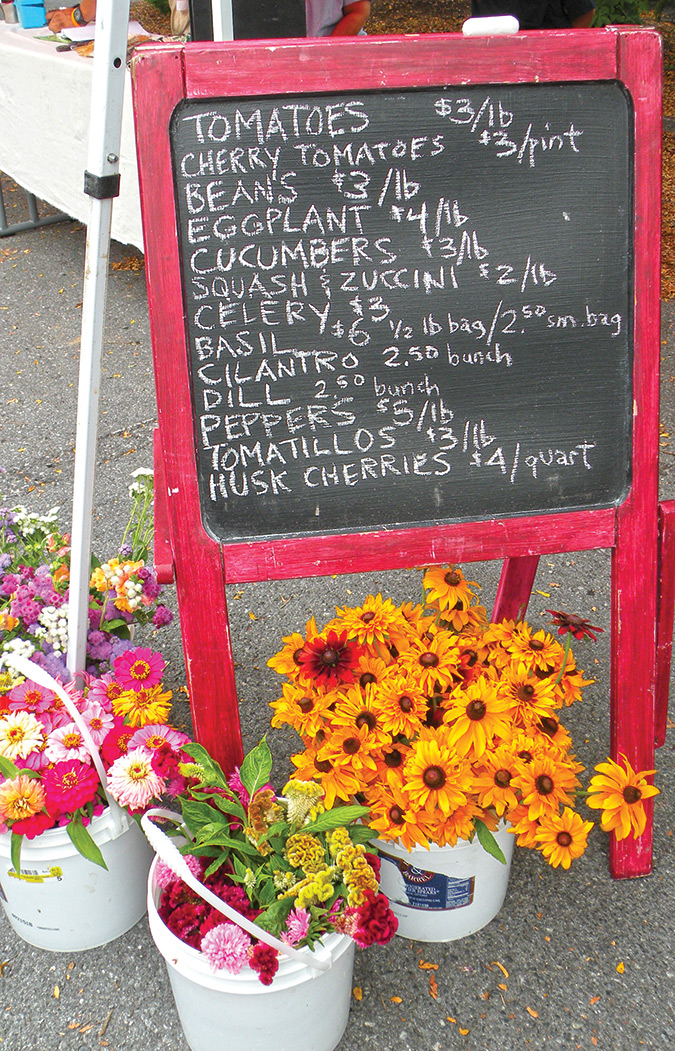 TOMATOES $3/lb
CHERRY TOMATOES $3/pint
BEANS $3/lb
EGGPLANT $4/lb
CUCUMBERS $3/lb
SQUASH & ZUCCINI $2/lb
CELERY $3
BASIL $6 1/2 lb bag/2.50 sm. bag
CILANTRO 2.50 bunch
DILL 2.50 bunch
PEPPERS $5/lb
TOMATILLOS $3/lb
HUSK CHERRIES $4/quart
BARREL